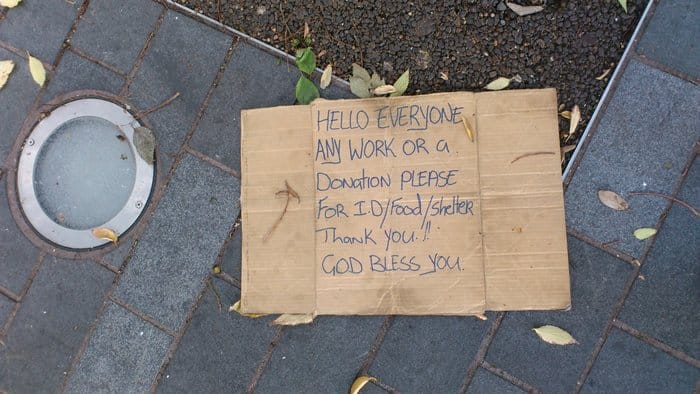 HELLO EVERYONE
ANY WORK OR a
Donation PLEASE
FOR I.D/Food/Shelter
Thank you.!!
GOD BLESS YOU.